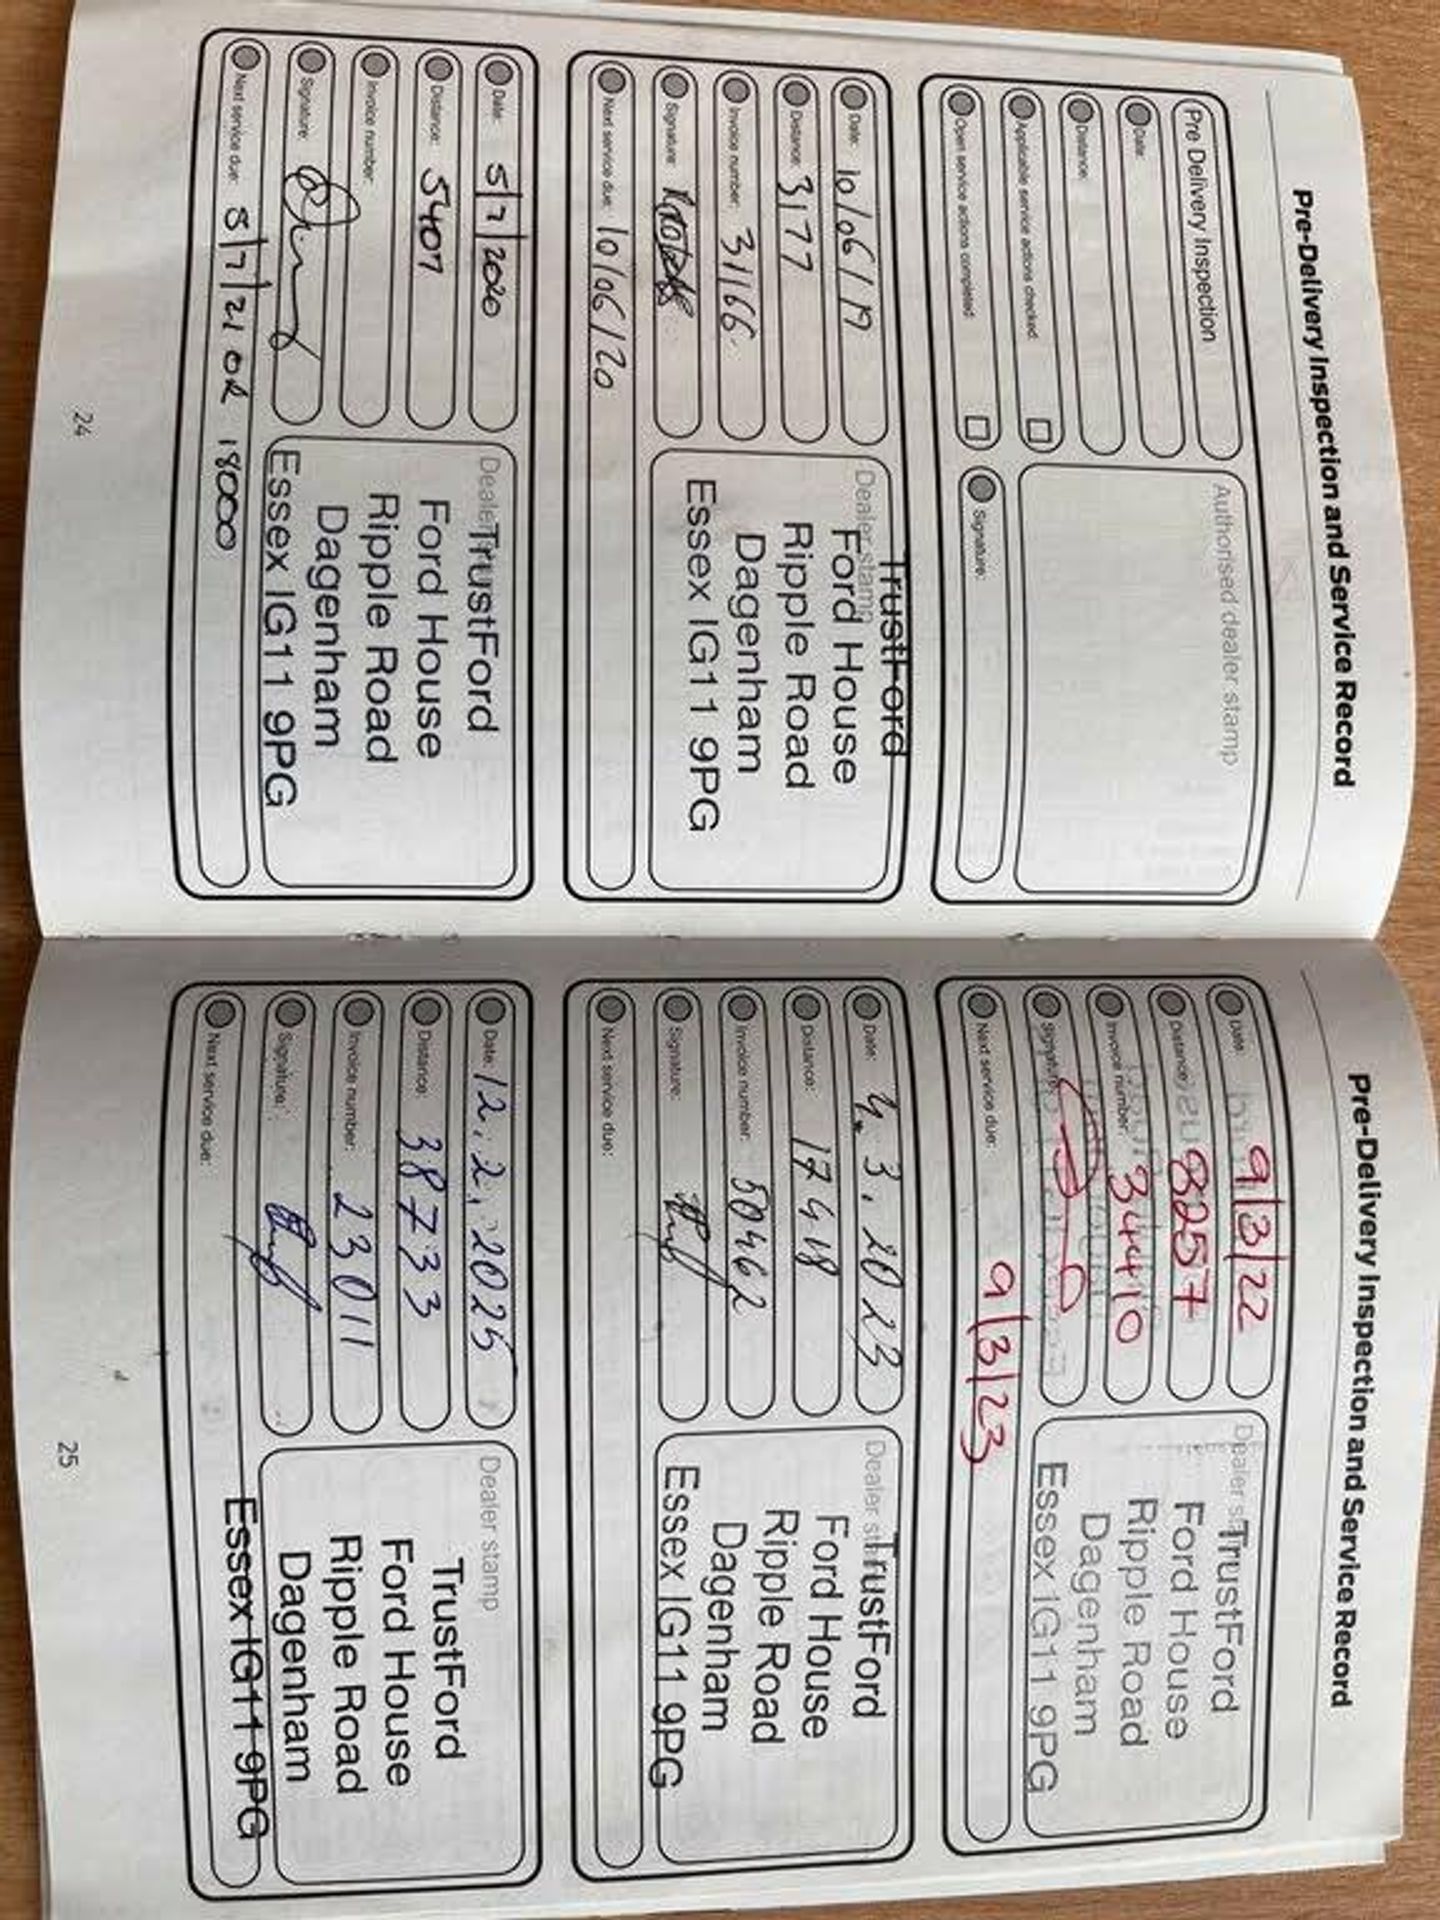 Pre-Delivery Inspection and Service Record
Pre Delivery Inspection
Date:
Distance:
Applicable service actions checked:
Open service actions completed:
Authorised dealer stamp
Signature:
Date: 10/06/19
Distance: 3177
Invoice number: 31166
Signature:
Next service due: 10/06/20
Dealer stamp
TrustFord
Ford House
Ripple Road
Dagenham
Essex IG11 9PG
Date: 5/7/2020
Distance: 5407
Invoice number:
Signature:
Next service due: 5/7/21 OR 18000
Dealer
TrustFord
Ford House
Ripple Road
Dagenham
Essex IG11 9PG
24
Pre-Delivery Inspection and Service Record
Date: 9/3/22
Distance: 8257
Invoice number: 34410
Signature:
Next service due: 9/3/23
Dealer
TrustFord
Ford House
Ripple Road
Dagenham
Essex IG11 9PG
Date: 4.3.2023
Distance: 17418
Invoice number: 50462
Signature:
Next service due:
Dealer
TrustFord
Ford House
Ripple Road
Dagenham
Essex IG11 9PG
Date: 12.2.2025
Distance: 38733
Invoice number: 23011
Signature:
Next service due:
Dealer stamp
TrustFord
Ford House
Ripple Road
Dagenham
Essex IG11 9PG
25